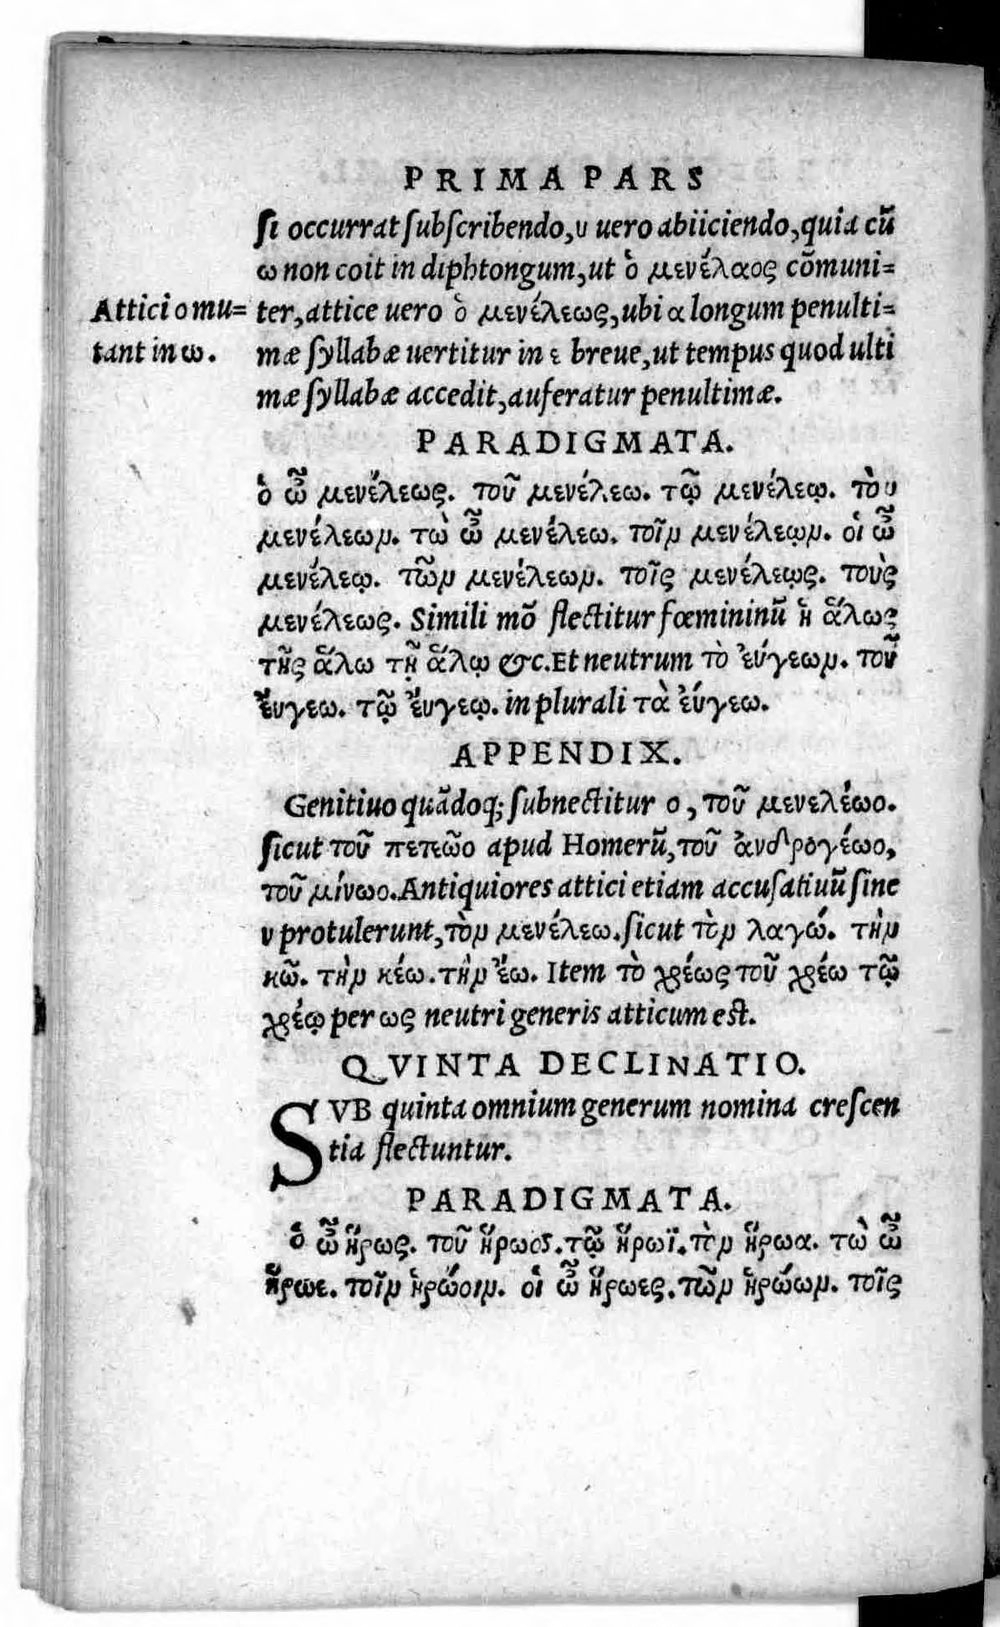 PRIMA PARS
ſi occurrat ſubſcribendo,υ uero abiiciendo,quia cũ
ω non coit in diphtongum,ut ὁ μενέλαος cõmuni=
Attici o mu= ter,attice uero ὁ μενέλεως,ubi α longum penulti=
tant in ω. mæ ſyllabæ uertitur in ε breue,ut tempus quod ulti
mæ ſyllabæ accedit,auferatur penultimæ.
PARADIGMATA.
ὁ ὦ μενέλεως. τοῦ μενέλεω. τῷ μενέλεῳ. τὸν
μενέλεων. τὼ ὦ μενέλεω. τοῖν μενέλεῳν. οἱ ὦ
μενέλεῳ. τῶν μενέλεων. τοῖς μενέλεῳς. τοὺς
μενέλεως. Simili mõ flectitur fœmininũ ἡ ἅλως
τῆς ἅλω τῇ ἅλῳ &c. Et neutrum τὸ ἐύγεων. τοῦ
ἔυγεω. τῷ ἔυγεῳ. in plurali τὰ ἐύγεω.
APPENDIX.
Genitiuo quãdoq; ſubnectitur ο, τοῦ μενελέωο.
ſicut τοῦ πετεῶο apud Homerũ,τοῦ ἀνδρογέωο,
τοῦ μίνωο.Antiquiores attici etiam accuſatiuũ ſine
ν protulerunt,τὸν μενέλεω.ſicut τὸν λαγώ. τὴν
κῶ. τὴν κέω.τὴν ἔω. Item τὸ χρέως τοῦ χρέω τῷ
χρέῳ per ως neutri generis atticum eſt.
QVINTA DECLINATIO.
SVB quinta omnium generum nomina creſcen
tia flectuntur.
PARADIGMATA.
ὁ ὦ ἥρως. τοῦ ἥρωος.τῷ ἥρωϊ.τὸν ἥρωα. τὼ ὦ
ἥρωε. τοῖν ἡρώοιν. οἱ ὦ ἥρωες.τῶν ἡρώων. τοῖς